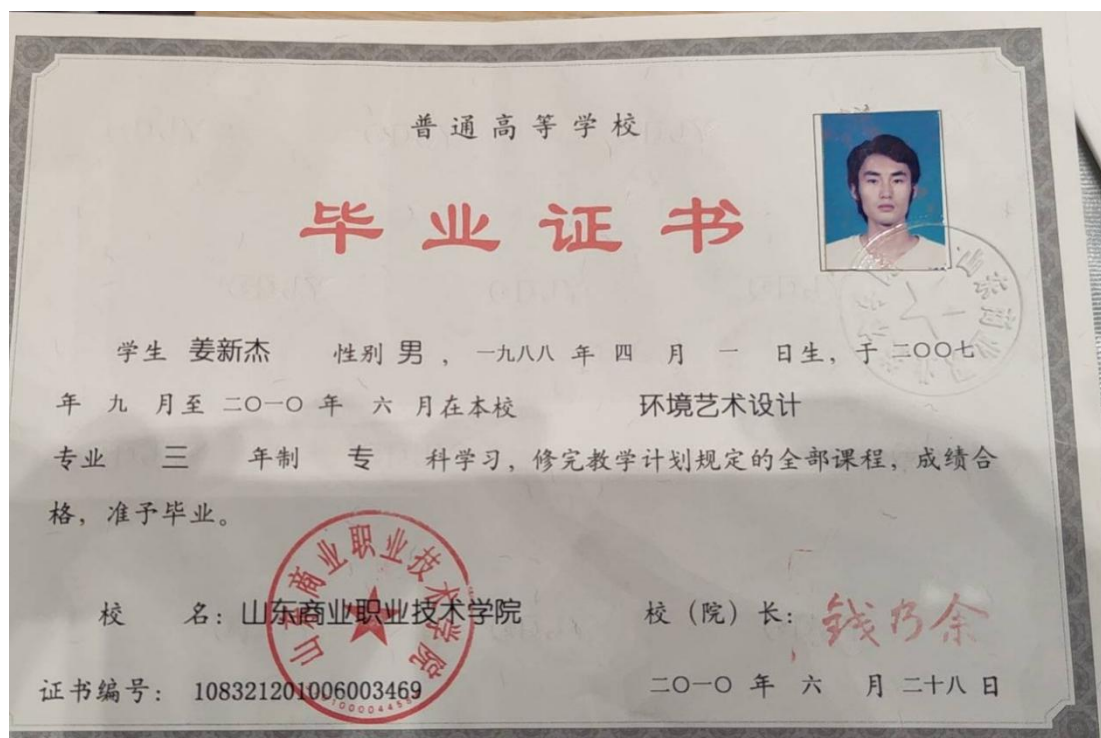 普通高等学校
毕业证书
学生 姜新杰 性别 男 ，一九八八 年 四 月 一 日生，于 二〇〇七
年 九 月至 二〇一〇 年 六 月在本校 环境艺术设计
专业 三 年制 专 科学习，修完教学计划规定的全部课程，成绩合
格，准予毕业。
山东商业职业技术学院
校 名：山东商业职业技术学院
校（院）长：钱乃余
证书编号： 108321201006003469
二〇一〇 年 六 月 二十八 日